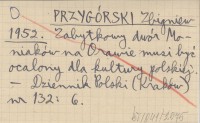 O
PRZYGÓRSKI Zbigniew
1952. Zabytkowy dwór Mo-
niaków na Orawie musi być
ocalony dla kultury polskiej.
– Dziennik Polski (Kraków)
nr 132: 6.